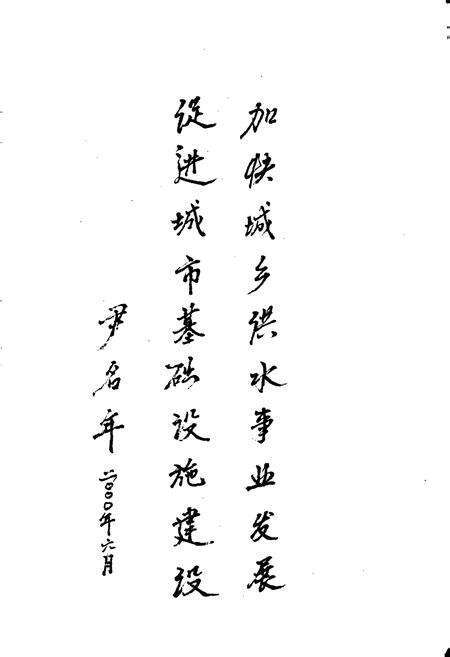 加快城乡供水事业发展
促进城市基础设施建设
尹名年
二〇〇〇年六月